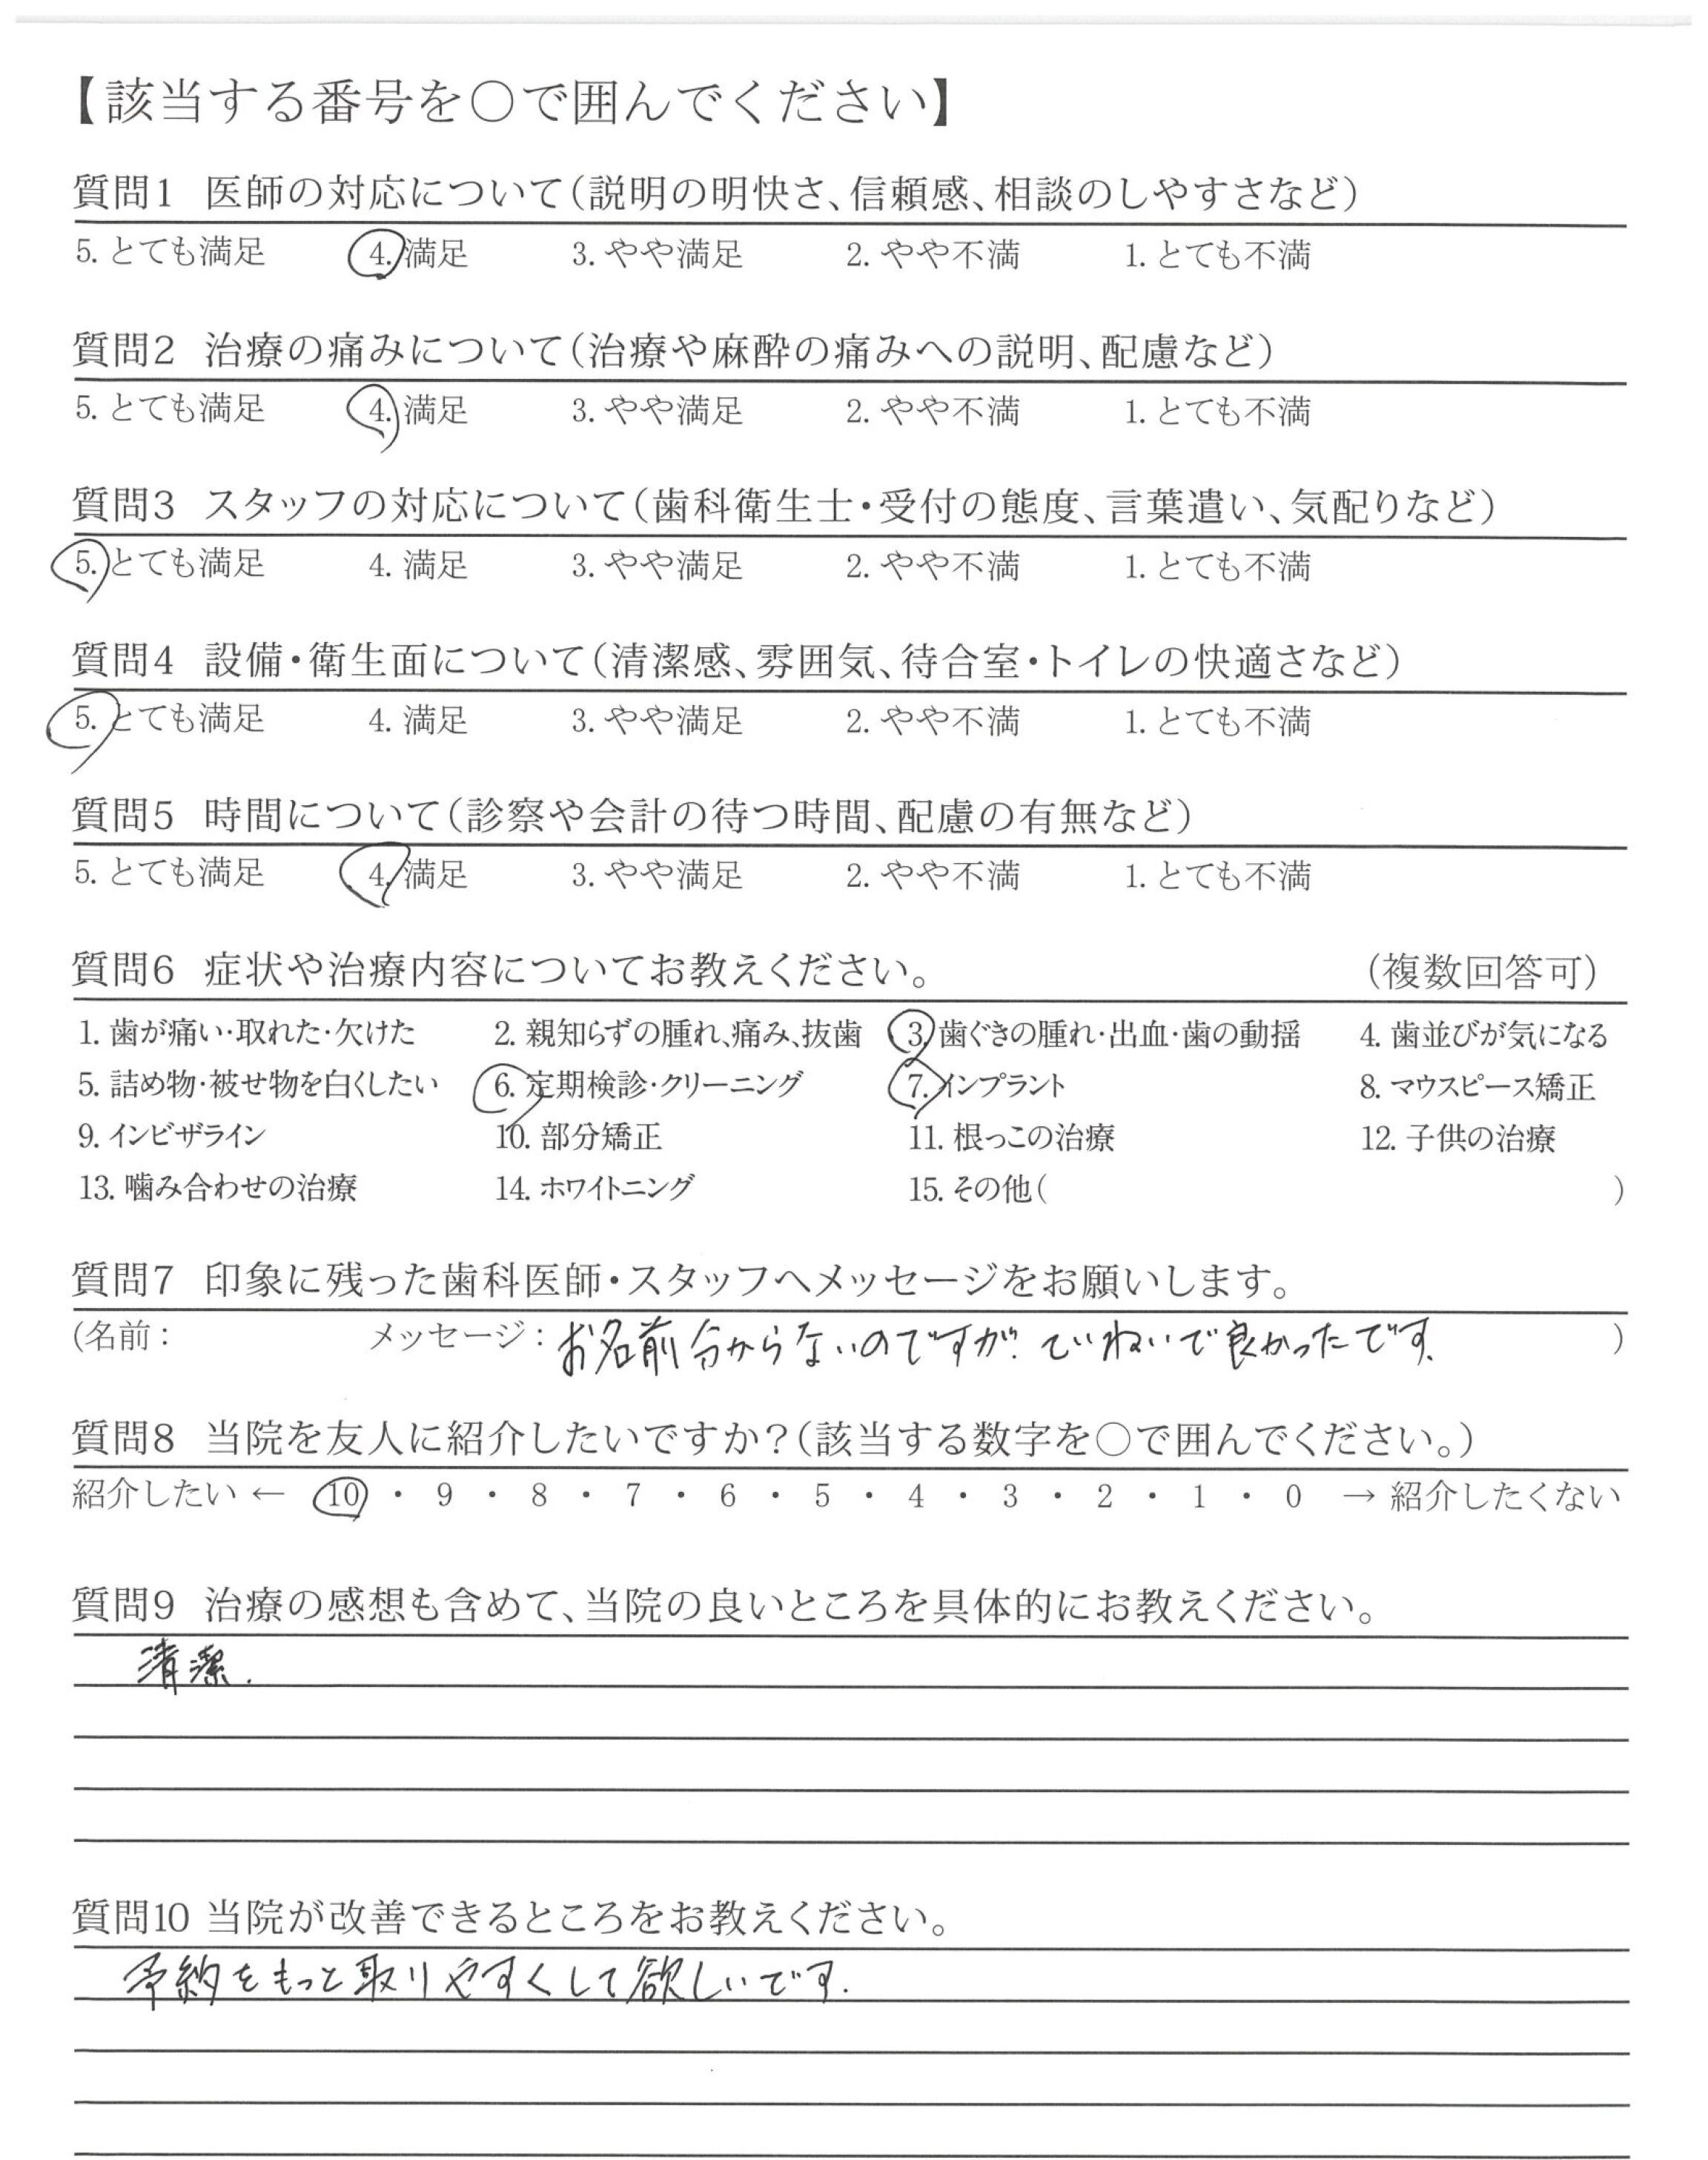 【該当する番号を○で囲んでください】
質問1 医師の対応について(説明の明快さ、信頼感、相談のしやすさなど)
5. とても満足 4. 満足 3. やや満足 2. やや不満 1. とても不満
質問2 治療の痛みについて(治療や麻酔の痛みへの説明、配慮など)
5. とても満足 4. 満足 3. やや満足 2. やや不満 1. とても不満
質問3 スタッフの対応について(歯科衛生士・受付の態度、言葉遣い、気配りなど)
5. とても満足 4. 満足 3. やや満足 2. やや不満 1. とても不満
質問4 設備・衛生面について(清潔感、雰囲気、待合室・トイレの快適さなど)
5. とても満足 4. 満足 3. やや満足 2. やや不満 1. とても不満
質問5 時間について(診察や会計の待つ時間、配慮の有無など)
5. とても満足 4. 満足 3. やや満足 2. やや不満 1. とても不満
質問6 症状や治療内容についてお教えください。 (複数回答可)
1. 歯が痛い・取れた・欠けた 2. 親知らずの腫れ、痛み、抜歯 3. 歯ぐきの腫れ・出血・歯の動揺 4. 歯並びが気になる
5. 詰め物・被せ物を白くしたい 6. 定期検診・クリーニング 7. インプラント 8. マウスピース矯正
9. インビザライン 10. 部分矯正 11. 根っこの治療 12. 子供の治療
13. 噛み合わせの治療 14. ホワイトニング 15. その他( )
質問7 印象に残った歯科医師・スタッフへメッセージをお願いします。
(名前: メッセージ: お名前分からないのですが。ていねいで良かったです。 )
質問8 当院を友人に紹介したいですか?(該当する数字を○で囲んでください。)
紹介したい ← 10 ・ 9 ・ 8 ・ 7 ・ 6 ・ 5 ・ 4 ・ 3 ・ 2 ・ 1 ・ 0 → 紹介したくない
質問9 治療の感想も含めて、当院の良いところを具体的にお教えください。
清潔.
質問10 当院が改善できるところをお教えください。
予約をもっと取りやすくして欲しいです.